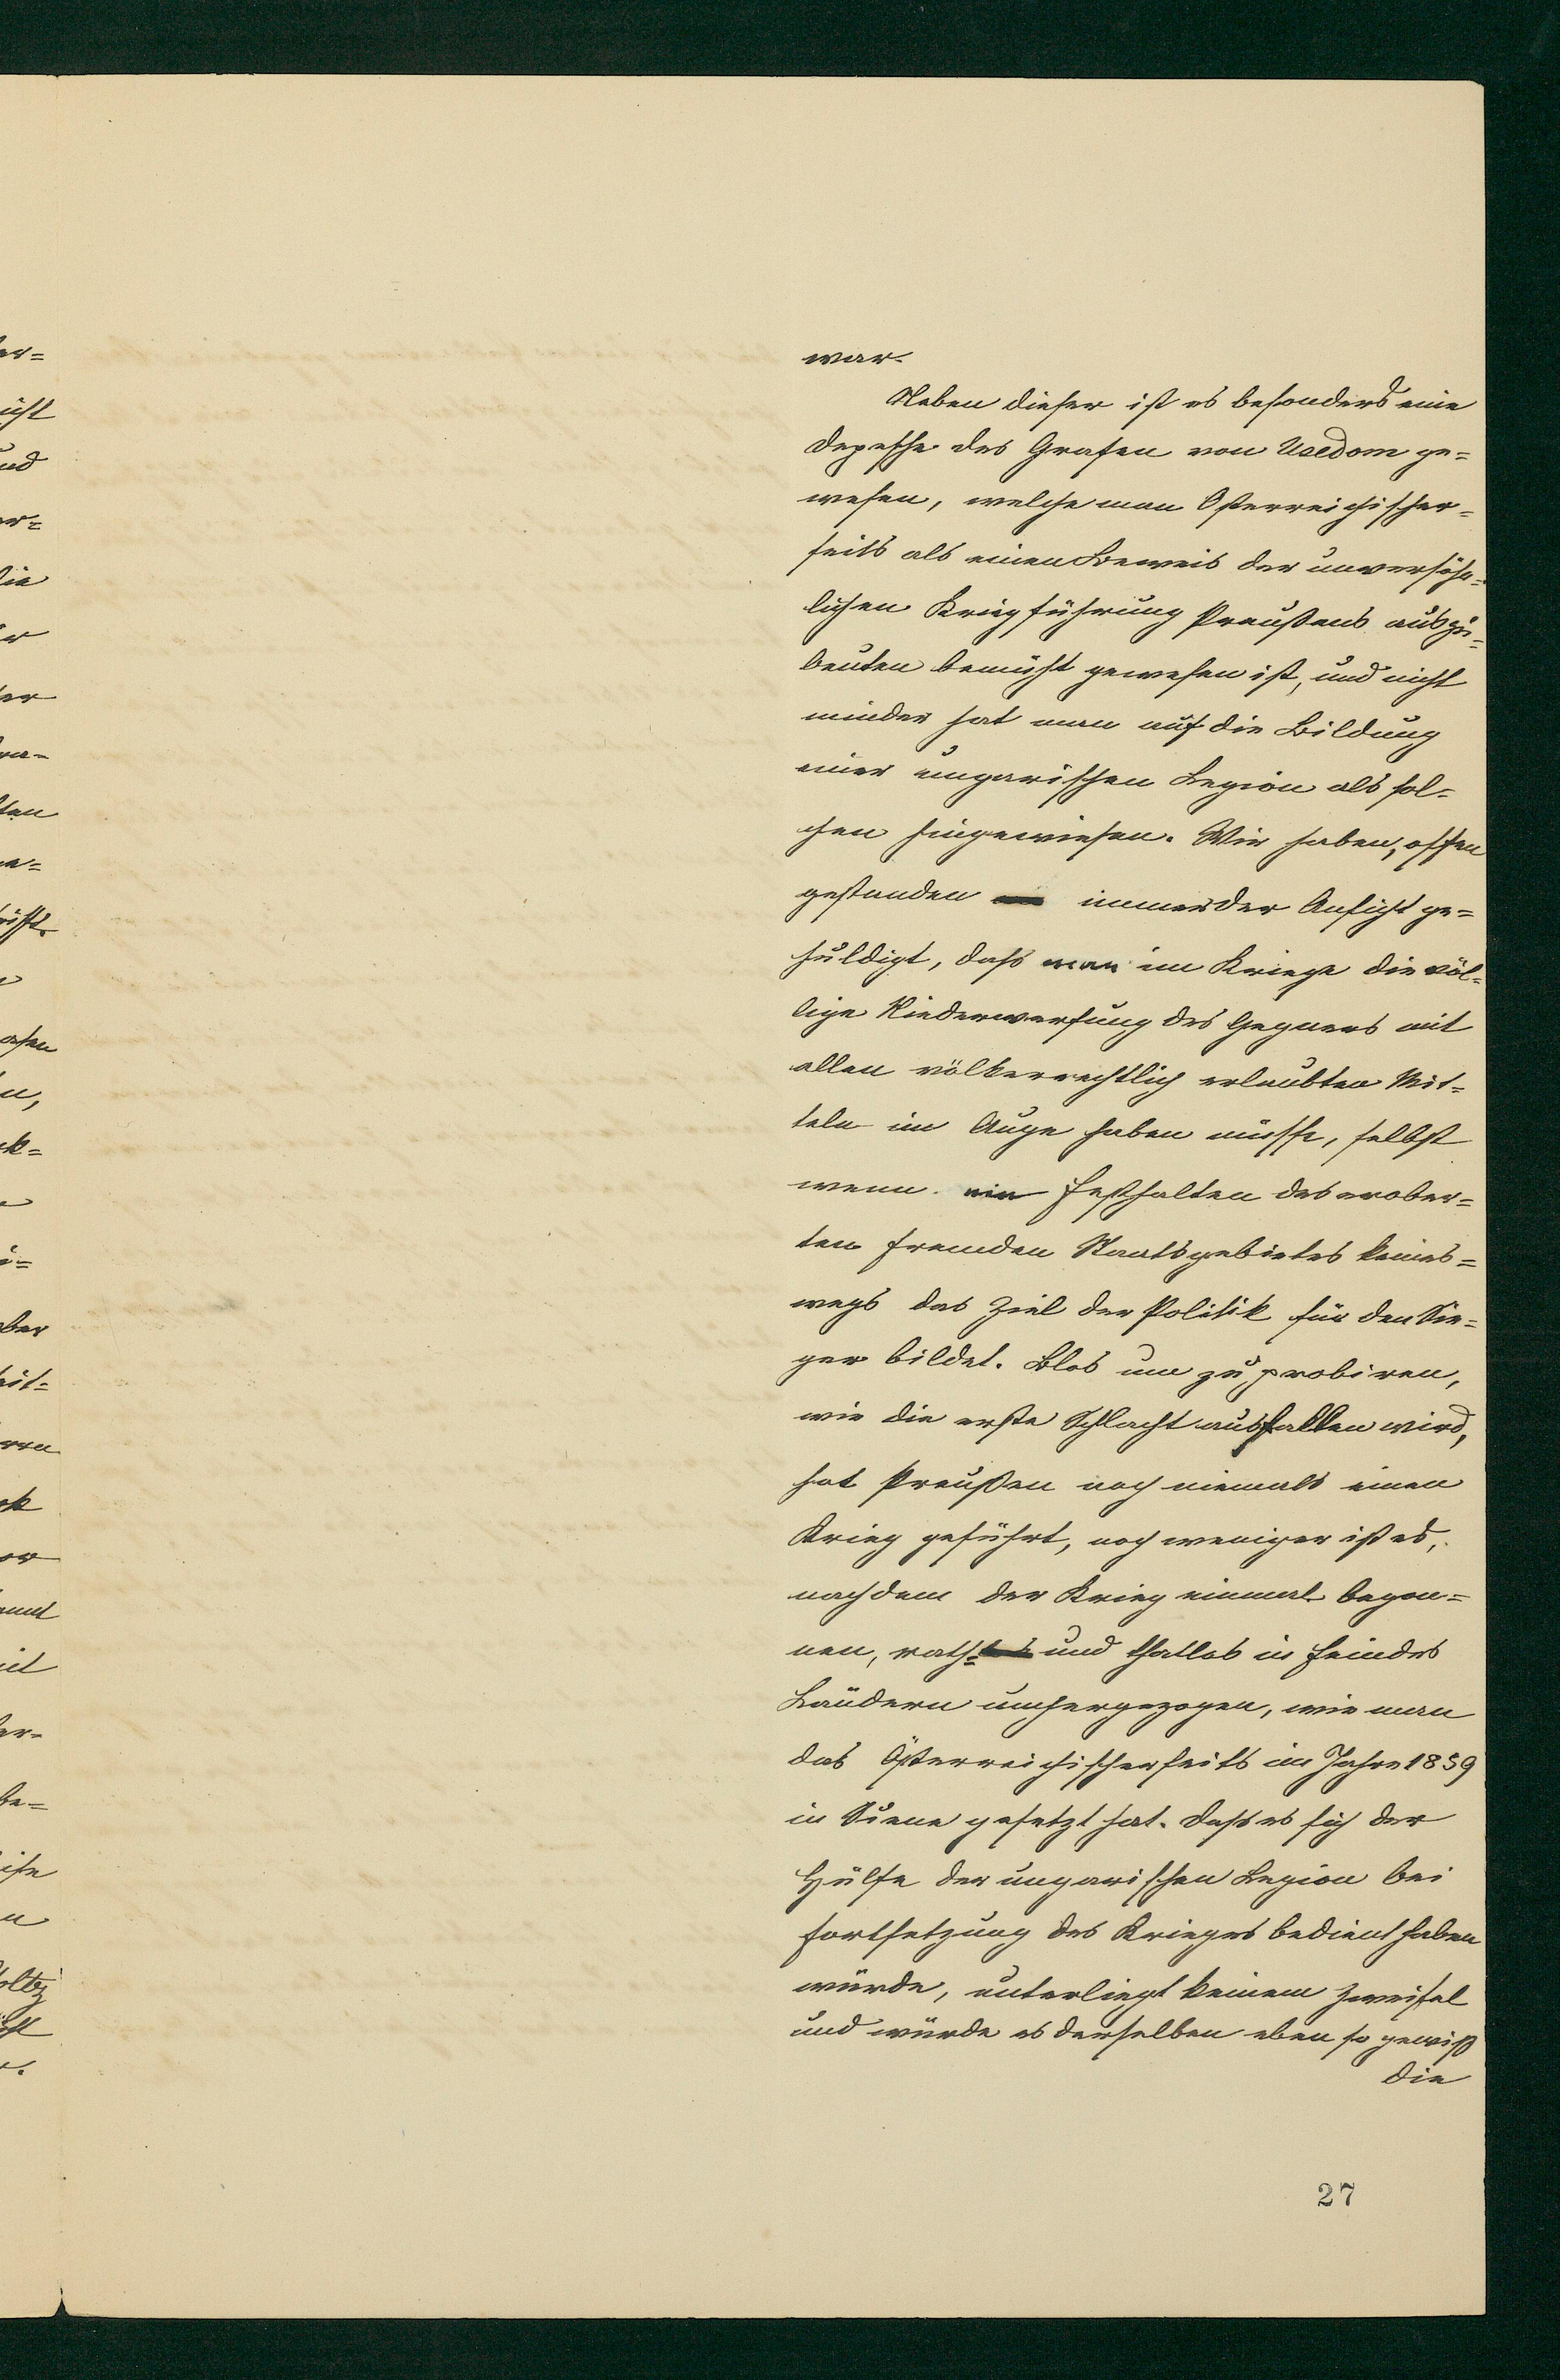 war.
Neben dieser ist es besonders eine
Depesche des Grafen von Usedom ge=
wesen, welche man Österreichischer=
seits als einen Beweis der unversöhn=
lichen Kriegführung Preußens auszu=
beuten bemüht gewesen ist, und nicht
minder hat man auf die Bildung
einer ungarischen Legion als sol=
chen hingewiesen. Wir haben, offen
gestanden immer der Ansicht ge=
huldigt, daß man im Kriege die völ=
lige Niederwerfung des Gegners mit
allen völkerrechtlich erlaubten Mit=
teln im Auge haben müsse, selbst
wenn ein Festhalten des erober=
ten fremden Staatsgebietes keines=
wegs das Ziel der Politik für den Sie=
ger bildet. Blos um zu probiren,
wie die erste Schlacht ausfallen wird,
hat Preußen noch niemals einen
Krieg geführt, noch weniger ist es,
nachdem der Krieg einmal begon=
nen, rath= und thatlos in Feindes
Ländern umhergezogen, wie man
das Österreichischerseits im Jahre 1859
in Scene gesetzt hat. Daß es sich der
Hülfe der ungarischen Legion bei
Fortsetzung des Krieges bedient haben
würde, unterliegt keinem Zweifel
und würde es derselben eben so gewiß
die
27